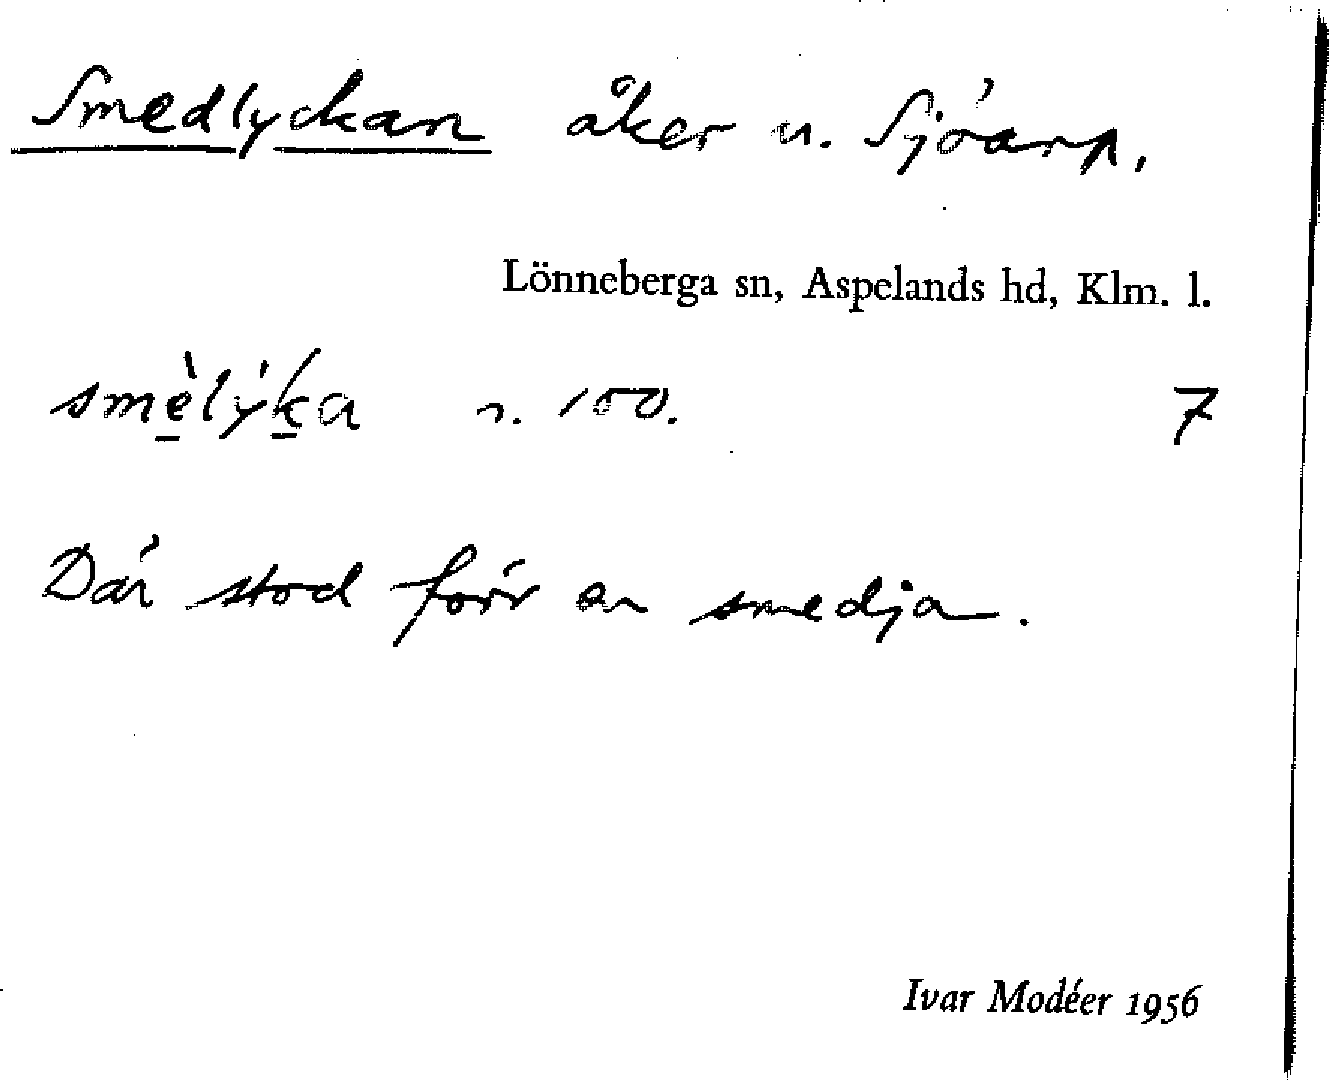 Smedlyckan åker u. Sjöarp.
Lönneberga sn, Aspelands hd, Klm. l.
smè̱lýḵa n. 100. 7
Där stod förr en smedja.
Ivar Modéer 1956